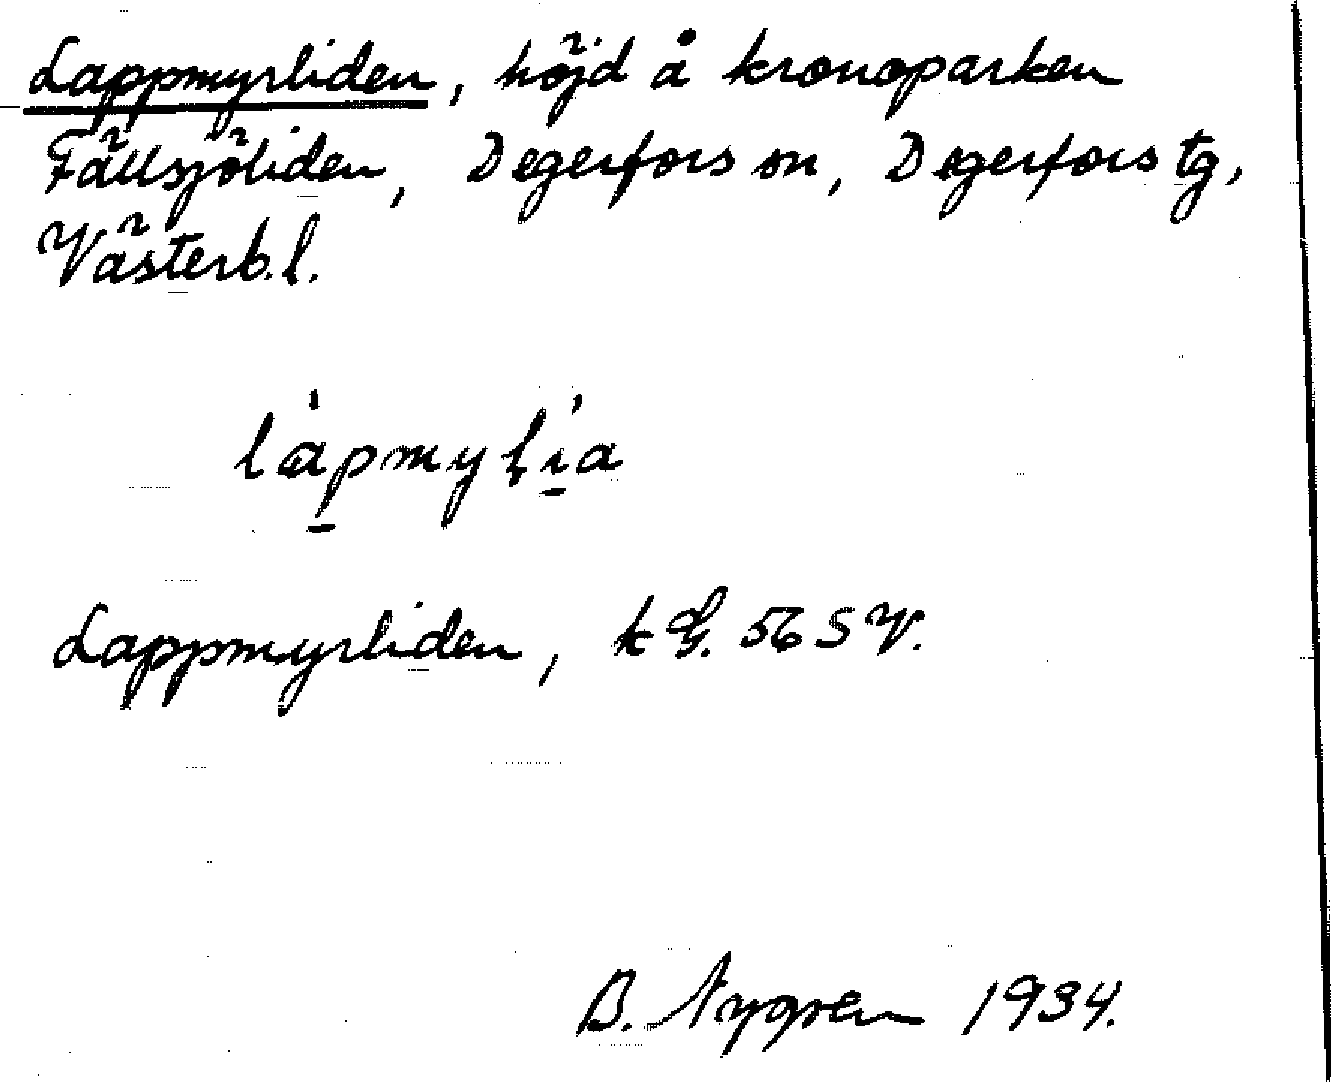 Lappmyrliden, höjd å kronoparken
Fällsjöliden, Degerfors sn, Degerfors tg,
Västerb. l.
làpmylía
Lappmyrliden, k G. 56 SV.
B. Nygren 1934.